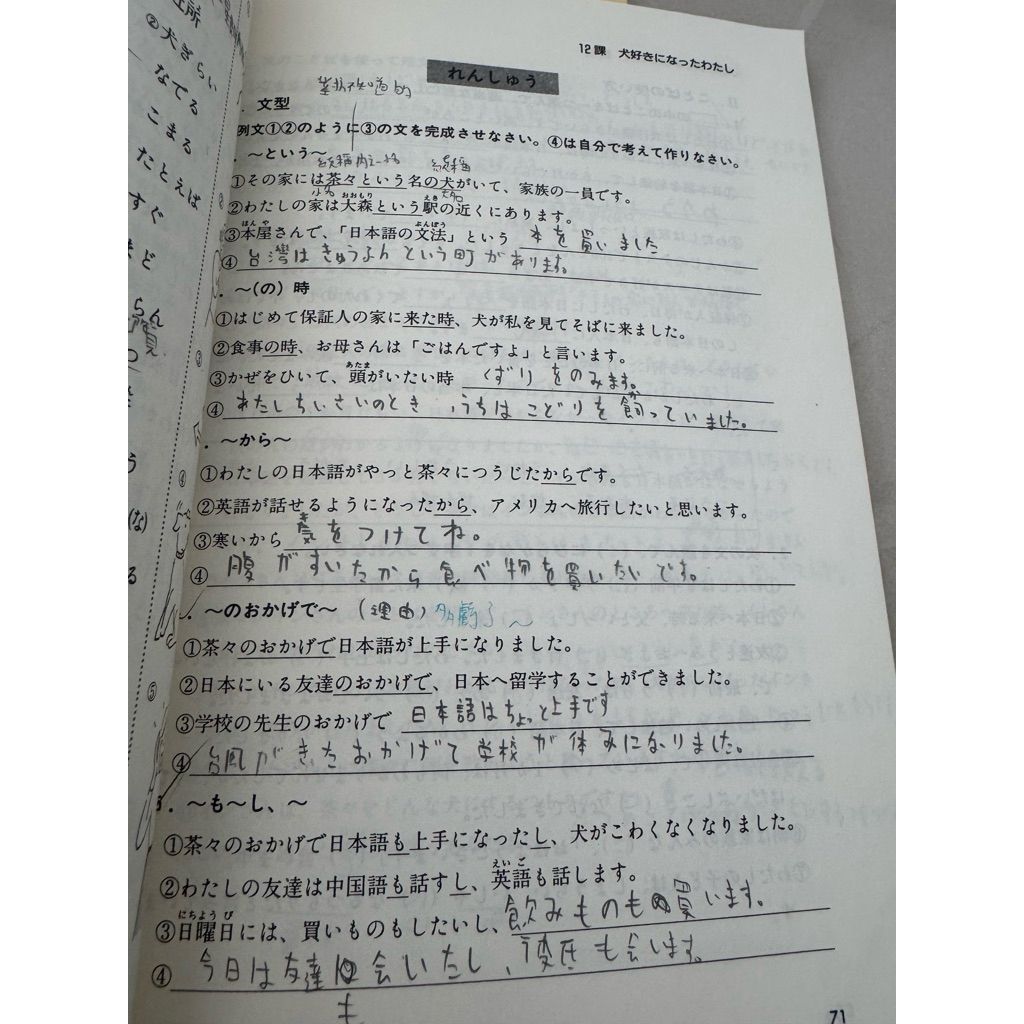 近所
②犬ぎらい
なでる
こまる
たとえば
すぐ
12課 犬好きになったわたし
れんしゅう
対不知道的
. 文型
例文①②のように③の文を完成させなさい。④は自分で考えて作りなさい。
. 〜という〜
①その家には茶々という名の犬がいて、家族の一員です。
小名 大名
おおもり えき
②わたしの家は大森という駅の近くにあります。
ほんや ぶんぽう
③本屋さんで、「日本語の文法」という 本を買いました
④ 台湾は きゅうよんという町があります。
. 〜(の)時
①はじめて保証人の家に来た時、犬が私を見てそばに来ました。
②食事の時、お母さんは「ごはんですよ」と言います。
あたま
③かぜをひいて、頭がいたい時 くずりをのみます。
か
④ わたしちいさいのとき、うちはこどりを飼っていました。
. 〜から〜
①わたしの日本語がやっと茶々につうじたからです。
②英語が話せるようになったから、アメリカへ旅行したいと思います。
き
③寒いから 気をつけてね。
④ 腹がすいたから食べ物を買いたいです。
. 〜のおかげで〜 (理由) 多虧了〜
①茶々のおかげで日本語が上手になりました。
②日本にいる友達のおかげで、日本へ留学することができました。
③学校の先生のおかげで 日本語はちょっと上手です
④ 台風がきたおかげて学校が休みになりました。
. 〜も〜し、〜
①茶々のおかげで日本語も上手になったし、犬がこわくなくなりました。
えいご
②わたしの友達は中国語も話すし、英語も話します。
にちようび
③日曜日には、買いものもしたいし、飲みものも買います。
④ 今日は友達 会いたし、彼氏も会います。
も
71